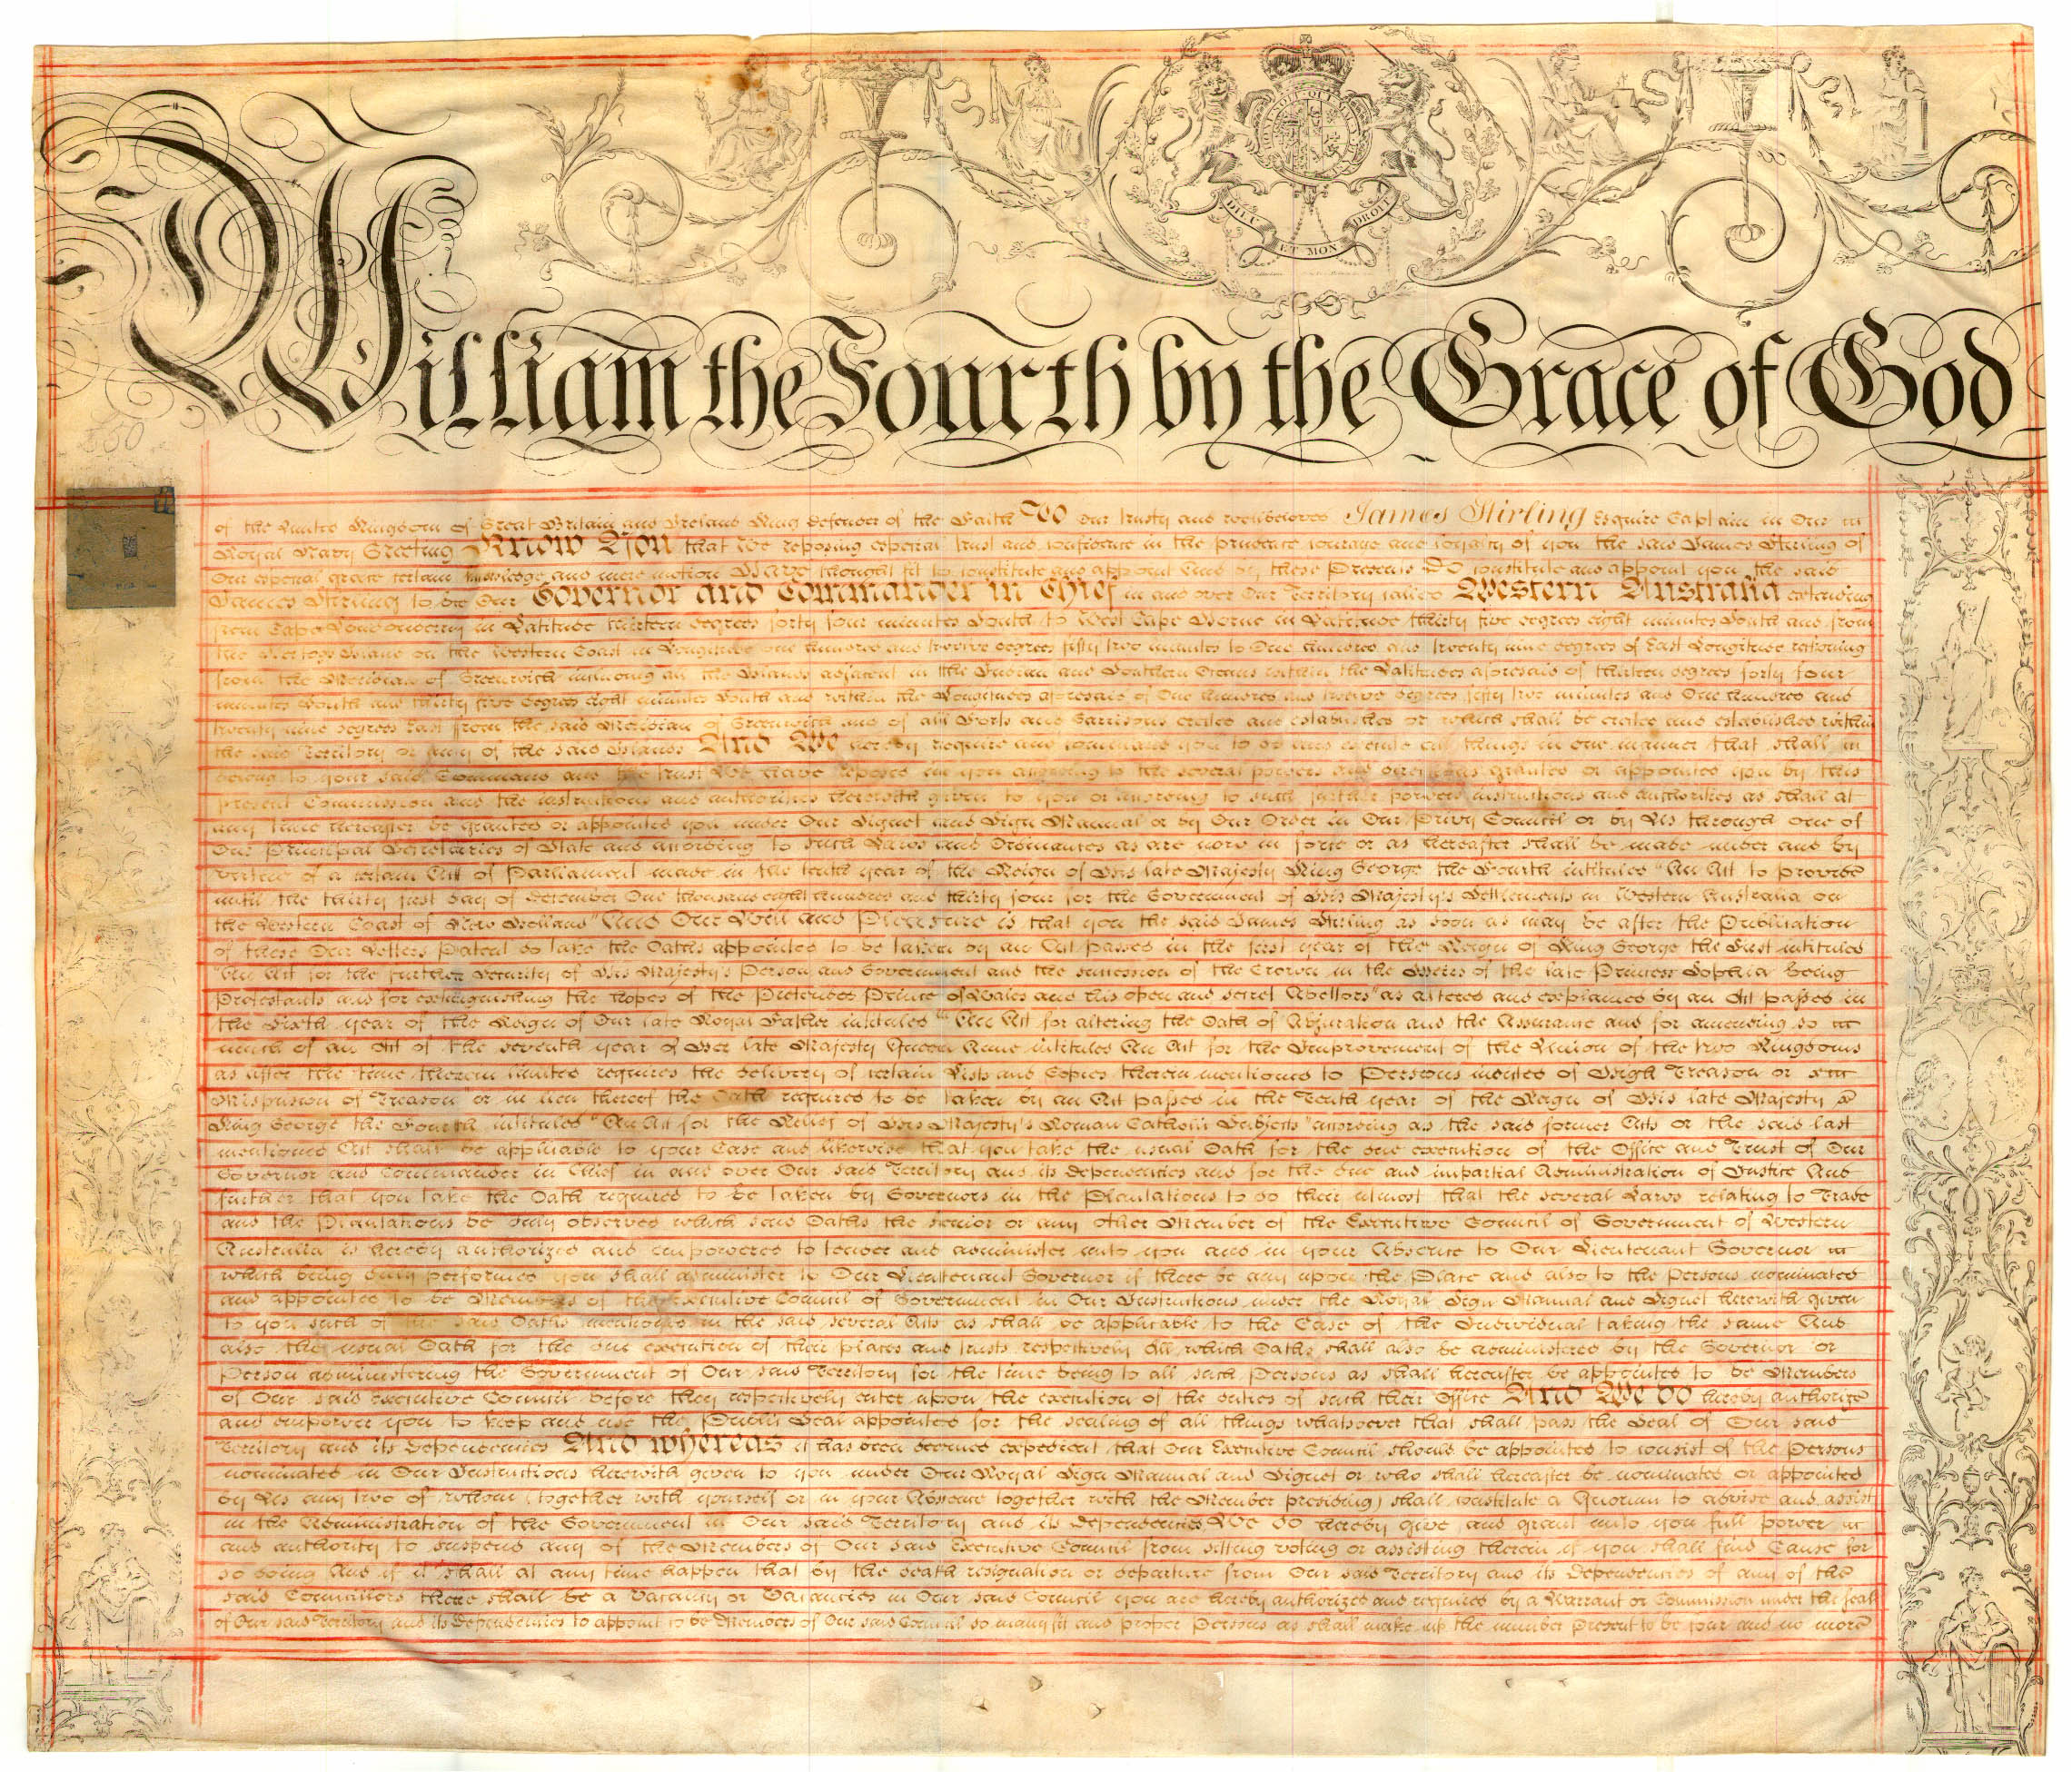 HONI SOIT QUI MAL Y PENSE
DIEU ET MON DROIT
William the Fourth by the Grace of God
of the United Kingdom of Great Britain and Ireland King Defender of the Faith To Our trusty and wellbeloved James Stirling Esquire Captain in Our
Royal Navy Greeting Know You that We reposing especial trust and confidence in the prudence courage and loyalty of you the said James Stirling of
Our especial grace certain knowledge and mere motion Have thought fit to constitute and appoint And by these Presents Do constitute and appoint you the said
James Stirling to be Our Governor and Commander in Chief in and over Our Territory called Western Australia extending
from Cape Londonderry in Latitude thirteen degrees forty four minutes South to West Cape Howe in Latitude thirty five degrees eight minutes South and from
the Hartogs Island on the Western Coast in Longitude one hundred and twelve degrees fifty two minutes to One hundred and twenty nine degrees of East Longitude reckoning
from the Meridian of Greenwich including all the Islands adjacent in the Indian and Southern Oceans within the Latitudes aforesaid of thirteen degrees forty four
minutes South and thirty five degrees eight minutes South and within the Longitudes aforesaid of One hundred and twelve degrees fifty two minutes and One hundred and
twenty nine degrees East from the said Meridian of Greenwich and of all Forts and Garrisons erected and established or which shall be erected and established within
the said Territory or any of the said Islands And We hereby require and command you to do and execute all things in due manner that shall
belong to your said Command and the trust We have reposed in you according to the several powers and directions granted or appointed you by this
present Commission and the instructions and authorities herewith given to you or according to such further powers instructions and authorities as shall at
any time hereafter be granted or appointed you under Our Signet and Sign Manual or by Our Order in Our Privy Council or by Us through one of
Our Principal Secretaries of State and according to such Laws and Ordinances as are now in force or as hereafter shall be made under and by
virtue of a certain Act of Parliament made in the tenth year of the Reign of His late Majesty King George the Fourth intituled "An Act to provide
until the thirty first day of December One thousand eight hundred and thirty four for the Government of His Majesty's Settlements in Western Australia on
the Western Coast of New Holland" And Our Will and Pleasure is that you the said James Stirling as soon as may be after the Publication
of these Our Letters Patent do take the Oaths appointed to be taken by an Act passed in the first year of the Reign of King George the First intituled
"An Act for the further Security of His Majesty's Person and Government and the succession of the Crown in the Heirs of the late Princess Sophia being
Protestants and for extinguishing the hopes of the Pretended Prince of Wales and his open and secret Abettors" as altered and explained by an Act passed in
the Sixth year of the Reign of Our late Royal Father intituled "An Act for altering the Oath of Abjuration and the Assurance and for amending so
much of an Act of the seventh year of Her late Majesty Queen Anne intituled An Act for the Improvement of the Union of the two Kingdoms
as after the time therein limited requires the delivery of certain Lists and Copies therein mentioned to Persons indicted of High Treason or
Misprision of Treason or in lieu thereof the Oath required to be taken by an Act passed in the Tenth year of the Reign of His late Majesty
King George the Fourth intituled "An Act for the Relief of His Majesty's Roman Catholic Subjects" according as the said former Acts or the said last
mentioned Act shall be applicable to your Case and likewise that you take the usual Oath for the due execution of the Office and Trust of Our
Governor and Commander in Chief in and over Our said Territory and its Dependencies and for the due and impartial Administration of Justice And
further that you take the Oath required to be taken by Governors in the Plantations to do their utmost that the several Laws relating to Trade
and the Plantations be duly observed which said Oaths the senior or any other Member of the Executive Council of Government of Western
Australia is hereby authorized and empowered to tender and administer unto you and in your Absence to Our Lieutenant Governor
which being duly performed you shall administer to Our Lieutenant Governor if there be any upon the Place and also to the Persons nominated
and appointed to be Members of the Executive Council of Government in Our Instructions under the Royal Sign Manual and Signet herewith given
to you such of the said Oaths mentioned in the said several Acts as shall be applicable to the Case of the Individual taking the same And
also the usual Oath for the due execution of their places and trusts respectively All which Oaths shall also be administered by the Governor or
Person administering the Government of Our said Territory for the time being to all such Persons as shall hereafter be appointed to be Members
of Our said Executive Council before they respectively enter upon the execution of the duties of such their Office And We do hereby authorize
and empower you to keep and use the Public Seal appointed for the sealing of all things whatsoever that shall pass the Seal of Our said
Territory and its Dependencies And whereas it has been deemed expedient that Our Executive Council should be appointed to consist of the Persons
nominated in Our Instructions herewith given to you under Our Royal Sign Manual and Signet or who shall hereafter be nominated or appointed
by Us any two of whom (together with yourself or in your Absence together with the Member presiding) shall constitute a Quorum to advise and assist
in the Administration of the Government in Our said Territory and its Dependencies We do hereby give and grant unto you full power
and authority to suspend any of the Members of Our said Executive Council from sitting voting or assisting therein if you shall find Cause for
so doing And if it shall at any time happen that by the death resignation or departure from Our said Territory and its Dependencies of any of the
said Councillors there shall be a Vacancy or Vacancies in Our said Council you are hereby authorized and required by a Warrant or Commission under the seal
of Our said Territory and its Dependencies to appoint to be Members of Our said Council so many fit and proper Persons as shall make up the number Present to be four and no more